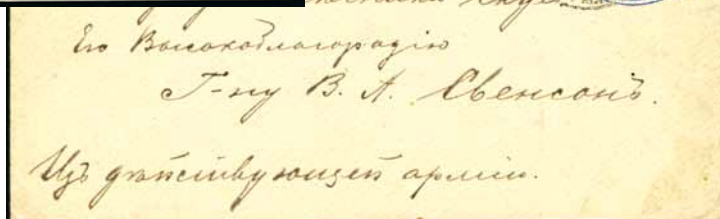 Его Высокоблагородію
Г-ну В. А. Свенсонъ.
Изъ дѣйствующей арміи.